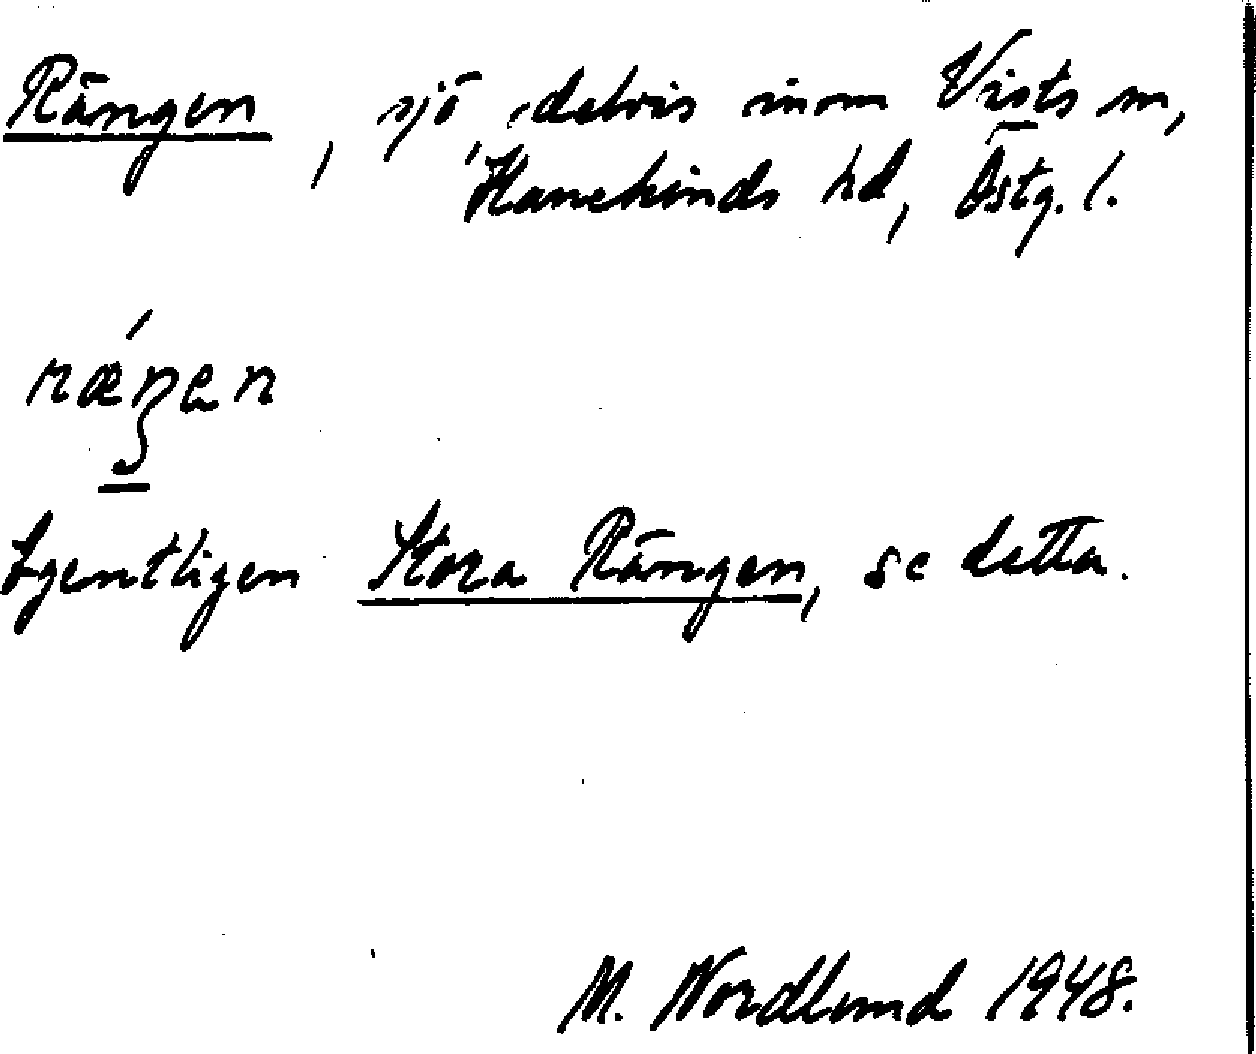 Rängen, sjö, delvis inom Vists sn,
Hanekinds hd, Östg. l.
ræ´ŋen
Egentligen Stora Rängen, se detta.
M. Nordlund 1948.